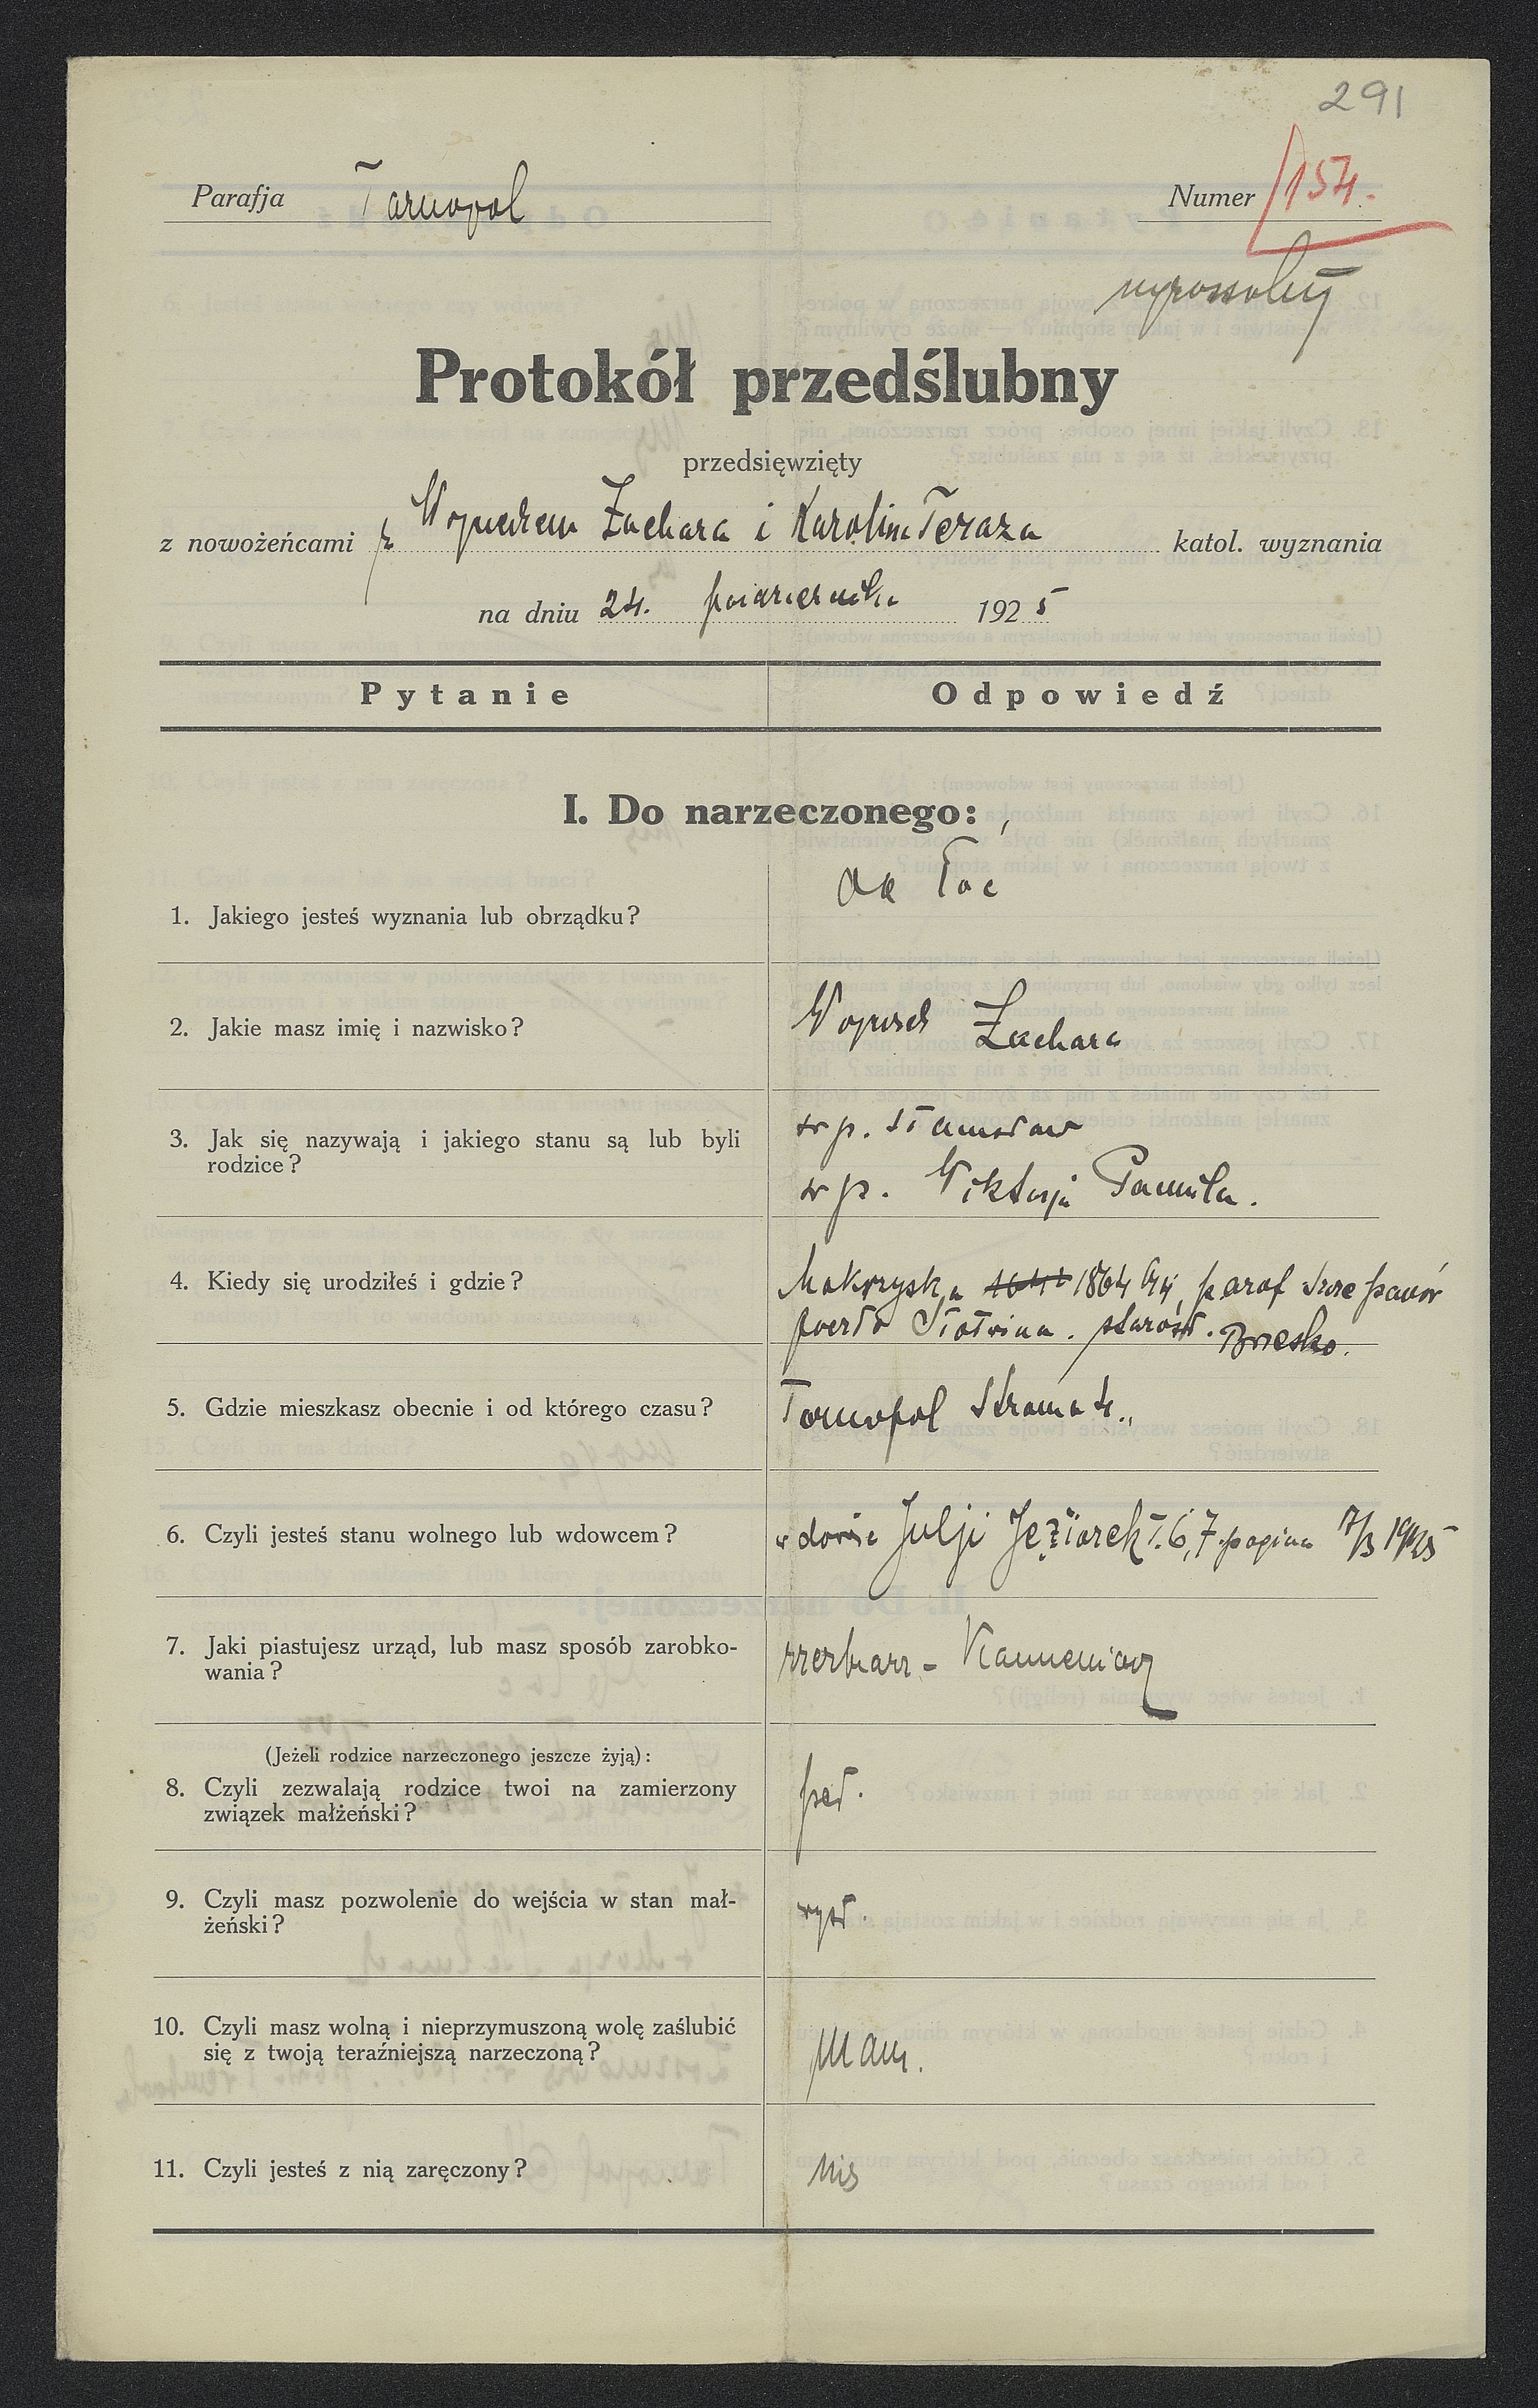 291
Parafja Tarnopol Numer 154.
Protokół przedślubny
przedsięwzięty
z nowożeńcami z Wojciechem Zachara i Karolina Teraza katol. wyznania
na dniu 24. października 1925
Pytanie Odpowiedź
I. Do narzeczonego:
1. Jakiego jesteś wyznania lub obrządku?
łac
2. Jakie masz imię i nazwisko?
Wojciech Zachara
3. Jak się nazywają i jakiego stanu są lub byli
rodzice?
ś p. Stanisław
ś p. Wiktorja Pamuła.
4. Kiedy się urodziłeś i gdzie?
Mokrzyska 1864 paraf Szczepanów
Słotwina. starost. Brzesko.
5. Gdzie mieszkasz obecnie i od którego czasu?
Tarnopol Stroma 4.
6. Czyli jesteś stanu wolnego lub wdowcem?
Julji Jeziorek T. 6, 7. pagina 7/3 1925
7. Jaki piastujesz urząd, lub masz sposób zarobko-
wania?
rzeźbiarz - Kamieniarz
(Jeżeli rodzice narzeczonego jeszcze żyją):
8. Czyli zezwalają rodzice twoi na zamierzony
związek małżeński?
9. Czyli masz pozwolenie do wejścia w stan mał-
żeński?
10. Czyli masz wolną i nieprzymuszoną wolę zaślubić
się z twoją teraźniejszą narzeczoną?
mam.
11. Czyli jesteś z nią zaręczony?
nie